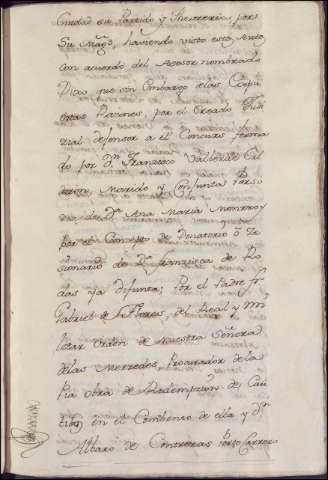 Ciudad su Partido y Thesoreria, por
Su Magd, haviendo visto estos Autos
con acuerdo del Asesor nombrado
Dixo que sin Embargo delas Expu
estas Razones, por el Creado Cura
dor defensor a el Concurso forma
do por Dn Francisco Valverde Cal
Marido y Conjunta Perso
na de Da Ana Maria Monrroy
por el Concepto de Donatario o Ce
sionario de Da Francisca de Ro
das ya Difunta; Por el Padre fr.
Gabriel de Flores, del Real y Mi
litar Orden de Nuestra Señora
delas Mercedes, Procurador dela
Pia obra de Redempcion de Cau
tivos en el Combento de ella y Dn
Albaro de Contreras